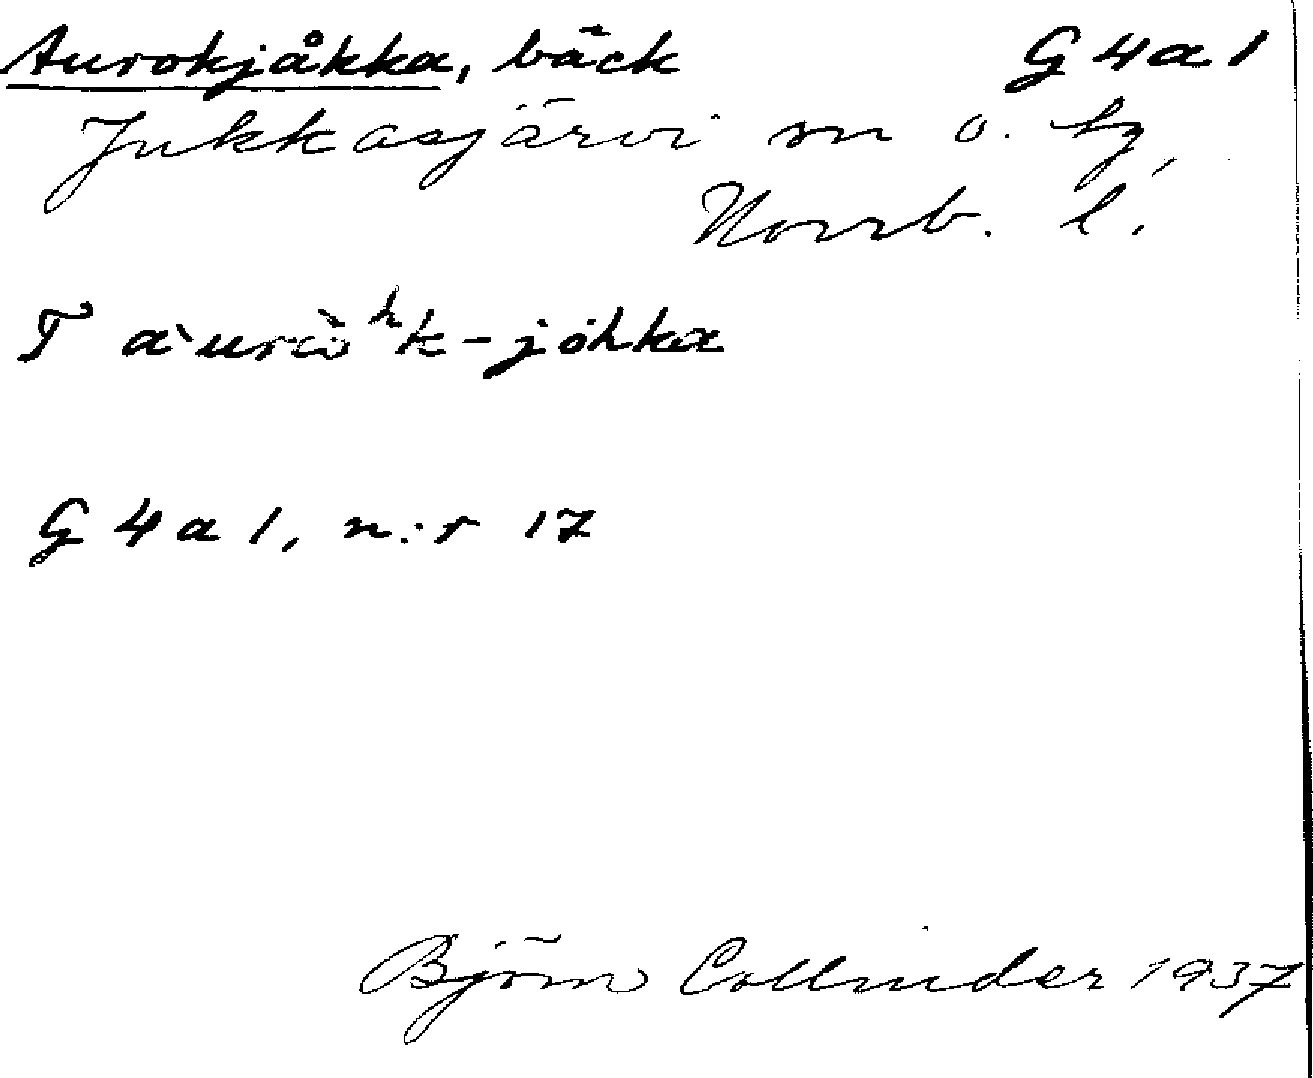 Aurokjåkka, bäck G4a1
Jukkasjärvi sn o. tg,
Norrb. l.
T a`urὼʰk-jòhka
G 4 a 1, n:r 17
Björn Collinder 1937